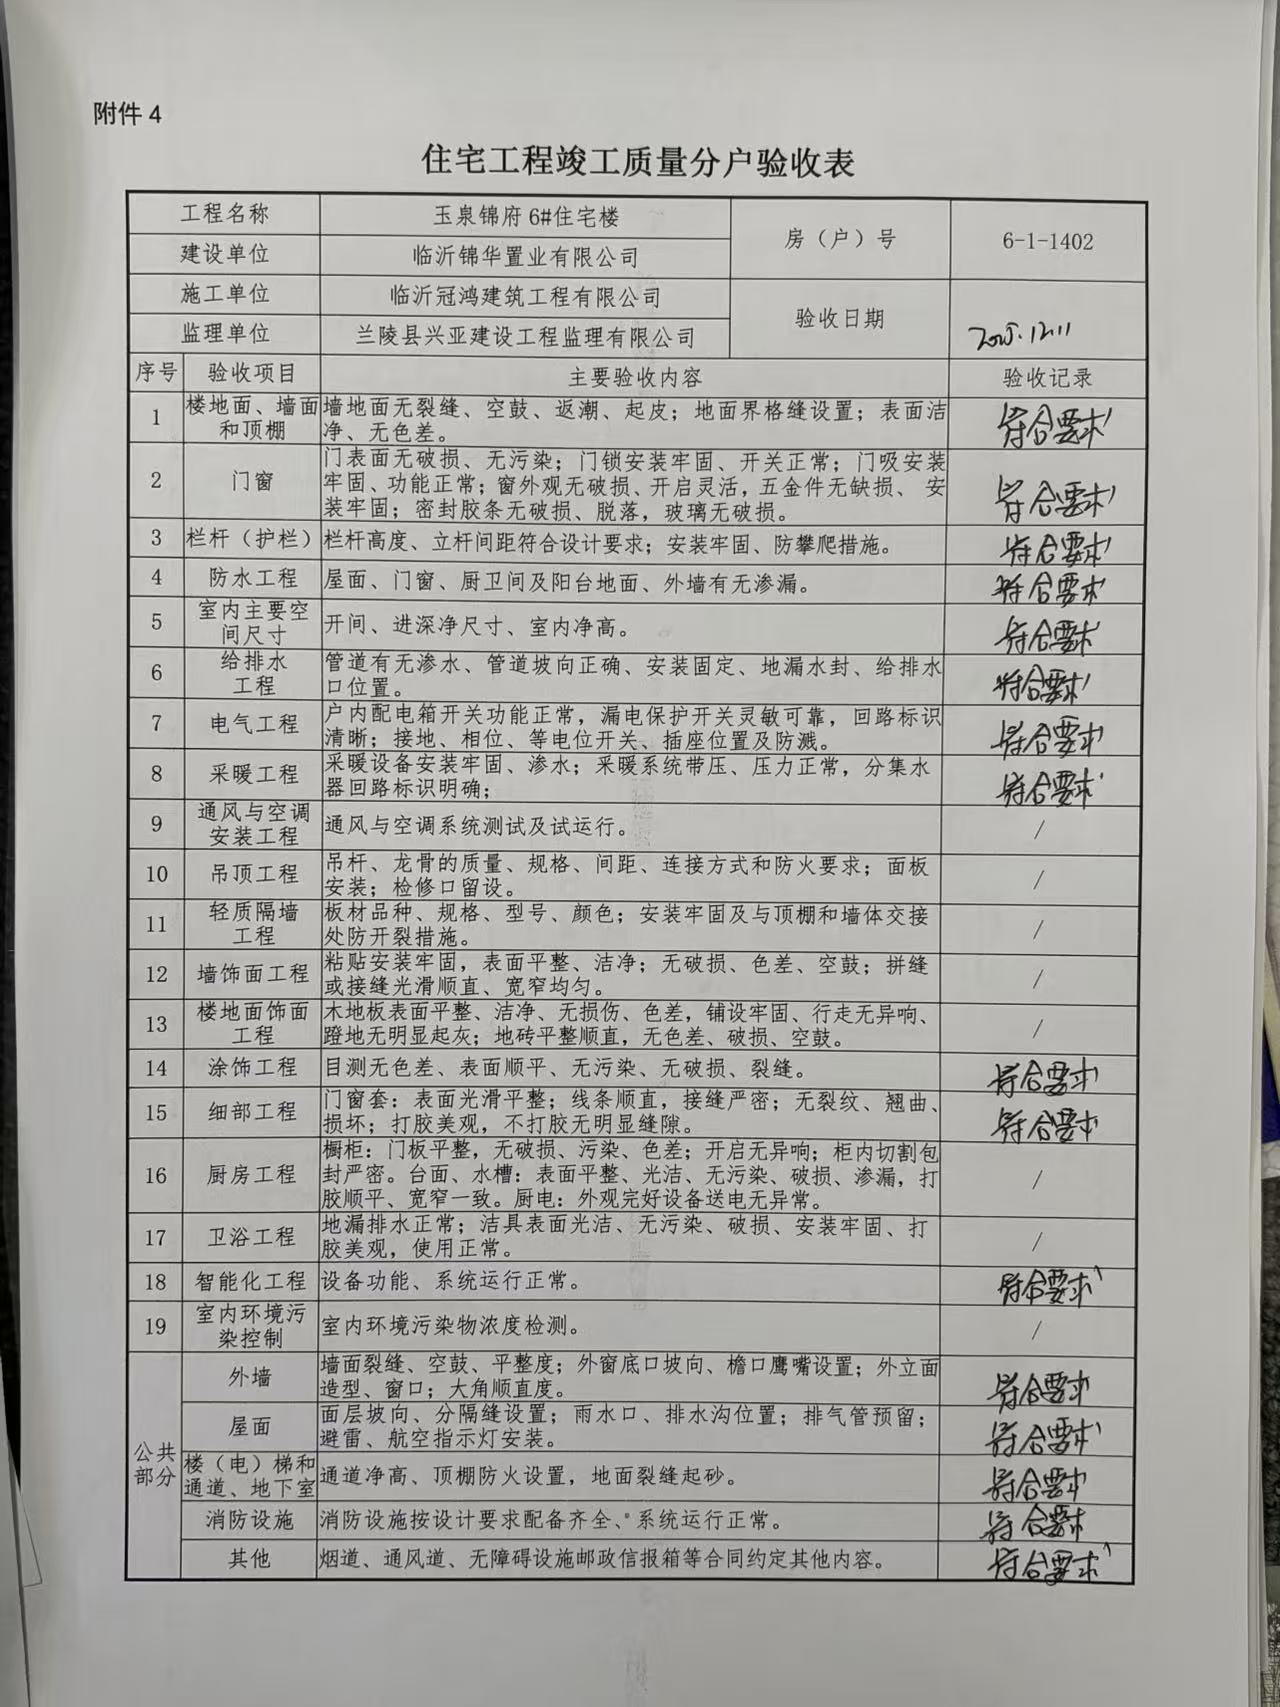 附件 4
住宅工程竣工质量分户验收表
工程名称 玉泉锦府 6#住宅楼 房（户）号 6-1-1402
建设单位 临沂锦华置业有限公司
施工单位 临沂冠鸿建筑工程有限公司 验收日期 2025.12.11
监理单位 兰陵县兴亚建设工程监理有限公司
序号 验收项目 主要验收内容 验收记录
1 楼地面、墙面和顶棚 墙地面无裂缝、空鼓、返潮、起皮；地面界格缝设置；表面洁 符合要求
净、无色差。
2 门窗 门表面无破损、无污染；门锁安装牢固、开关正常；门吸安装 符合要求
牢固、功能正常；窗外观无破损、开启灵活，五金件无缺损、 安
装牢固；密封胶条无破损、脱落，玻璃无破损。
3 栏杆（护栏） 栏杆高度、立杆间距符合设计要求；安装牢固、防攀爬措施。 符合要求
4 防水工程 屋面、门窗、厨卫间及阳台地面、外墙有无渗漏。 符合要求
5 室内主要空间尺寸 开间、进深净尺寸、室内净高。 符合要求
6 给排水工程 管道有无渗水、管道坡向正确、安装固定、地漏水封、给排水 符合要求
口位置。
7 电气工程 户内配电箱开关功能正常，漏电保护开关灵敏可靠，回路标识 符合要求
清晰；接地、相位、等电位开关、插座位置及防溅。
8 采暖工程 采暖设备安装牢固、渗水；采暖系统带压、压力正常，分集水 符合要求
器回路标识明确；
9 通风与空调安装工程 通风与空调系统测试及试运行。 /
10 吊顶工程 吊杆、龙骨的质量、规格、间距、连接方式和防火要求；面板 /
安装；检修口留设。
11 轻质隔墙工程 板材品种、规格、型号、颜色；安装牢固及与顶棚和墙体交接 /
处防开裂措施。
12 墙饰面工程 粘贴安装牢固，表面平整、洁净；无破损、色差、空鼓；拼缝 /
或接缝光滑顺直、宽窄均匀。
13 楼地面饰面工程 木地板表面平整、洁净、无损伤、色差，铺设牢固、行走无异响、 /
蹬地无明显起灰；地砖平整顺直，无色差、破损、空鼓。
14 涂饰工程 目测无色差、表面顺平、无污染、无破损、裂缝。 符合要求
15 细部工程 门窗套：表面光滑平整；线条顺直，接缝严密；无裂纹、翘曲、 符合要求
损坏；打胶美观，不打胶无明显缝隙。
16 厨房工程 橱柜：门板平整，无破损、污染、色差；开启无异响；柜内切割包 /
封严密。台面、水槽：表面平整、光洁、无污染、破损、渗漏，打
胶顺平、宽窄一致。厨电：外观完好设备送电无异常。
17 卫浴工程 地漏排水正常；洁具表面光洁、无污染、破损、安装牢固、打 /
胶美观，使用正常。
18 智能化工程 设备功能、系统运行正常。 符合要求
19 室内环境污染控制 室内环境污染物浓度检测。 /
公共部分 外墙 墙面裂缝、空鼓、平整度；外窗底口坡向、檐口鹰嘴设置；外立面 符合要求
造型、窗口；大角顺直度。
屋面 面层坡向、分隔缝设置；雨水口、排水沟位置；排气管预留； 符合要求
避雷、航空指示灯安装。
楼（电）梯和通道、地下室 通道净高、顶棚防火设置，地面裂缝起砂。 符合要求
消防设施 消防设施按设计要求配备齐全、系统运行正常。 符合要求
其他 烟道、通风道、无障碍设施邮政信报箱等合同约定其他内容。 符合要求